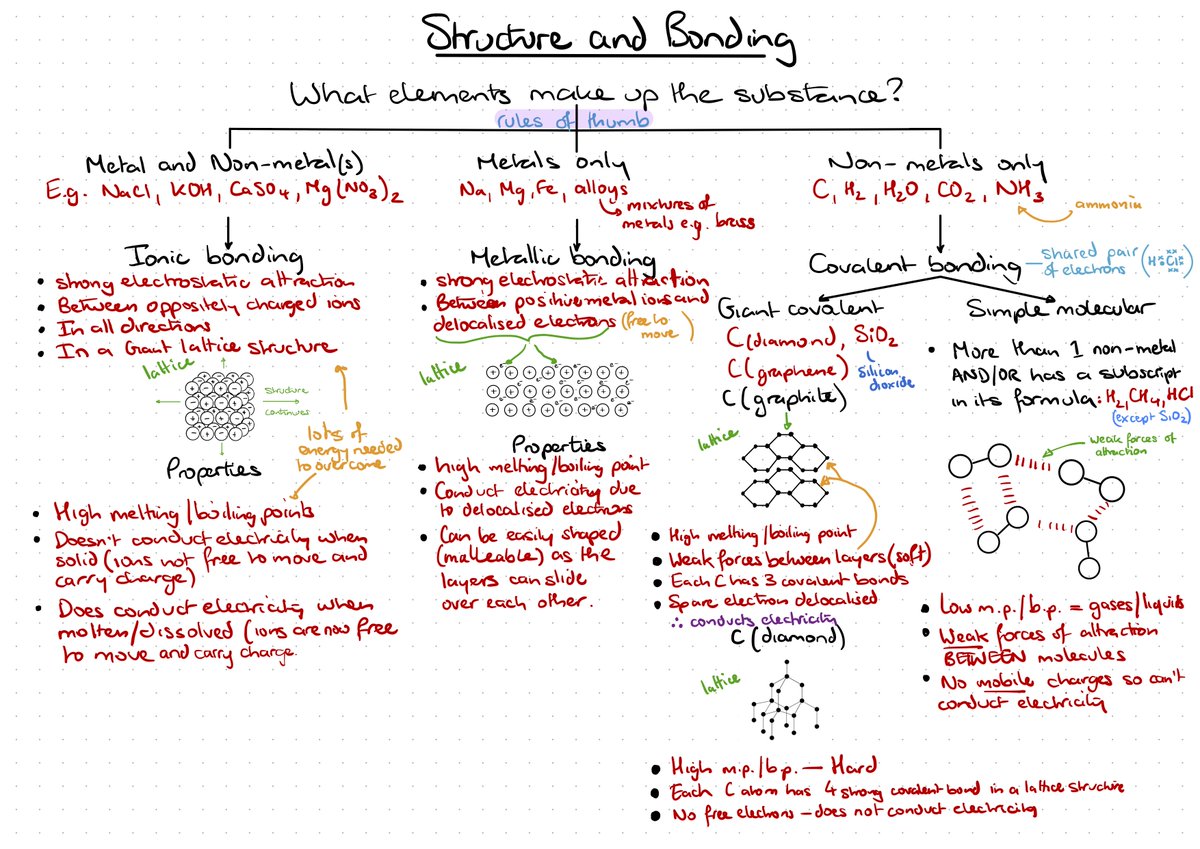 Structure and Bonding
What elements make up the substance?
rules of thumb
Metal and Non-metal(s)
E.g. NaCl, KOH, CaSO₄, Mg(NO₃)₂
Ionic bonding
• strong electrostatic attraction
• Between oppositely charged ions
• In all directions
• In a Giant lattice structure
lattice
Structure
continues
lots of
energy needed
to overcome
Properties
• High melting/boiling points
• Doesn't conduct electricity when
solid (ions not free to move and
carry charge)
• Does conduct electricity when
molten/dissolved (ions are now free
to move and carry charge.
Metals only
Na, Mg, Fe, alloys
mixtures of
metals e.g. brass
Metallic bonding
• strong electrostatic attraction
• Between positive metal ions and
delocalised electrons (free to
move)
lattice
Properties
• high melting/boiling point
• Conduct electricity due
to delocalised electrons
• Can be easily shaped
(malleable) as the
layers can slide
over each other.
Non-metals only
C, H₂, H₂O, CO₂, NH₃
ammonia
Covalent bonding
— shared pair
of electrons (H Cl)
Giant covalent
C(diamond), SiO₂
C(graphene)
silicon
dioxide
C(graphite)
lattice
• High melting/boiling point
• Weak forces between layers (soft)
• Each C has 3 covalent bonds
• Spare electron delocalised
∴ conducts electricity
C (diamond)
lattice
• High m.p./b.p. — Hard
• Each C atom has 4 strong covalent bond in a lattice structure
• No free electrons — does not conduct electricity
Simple molecular
• More than 1 non-metal
AND/OR has a subscript
in its formula: H₂, CH₄, HCl
(except SiO₂)
weak forces of
attraction
• Low m.p./b.p. = gases/liquids
• Weak forces of attraction
BETWEEN molecules
• No mobile charges so can't
conduct electricity